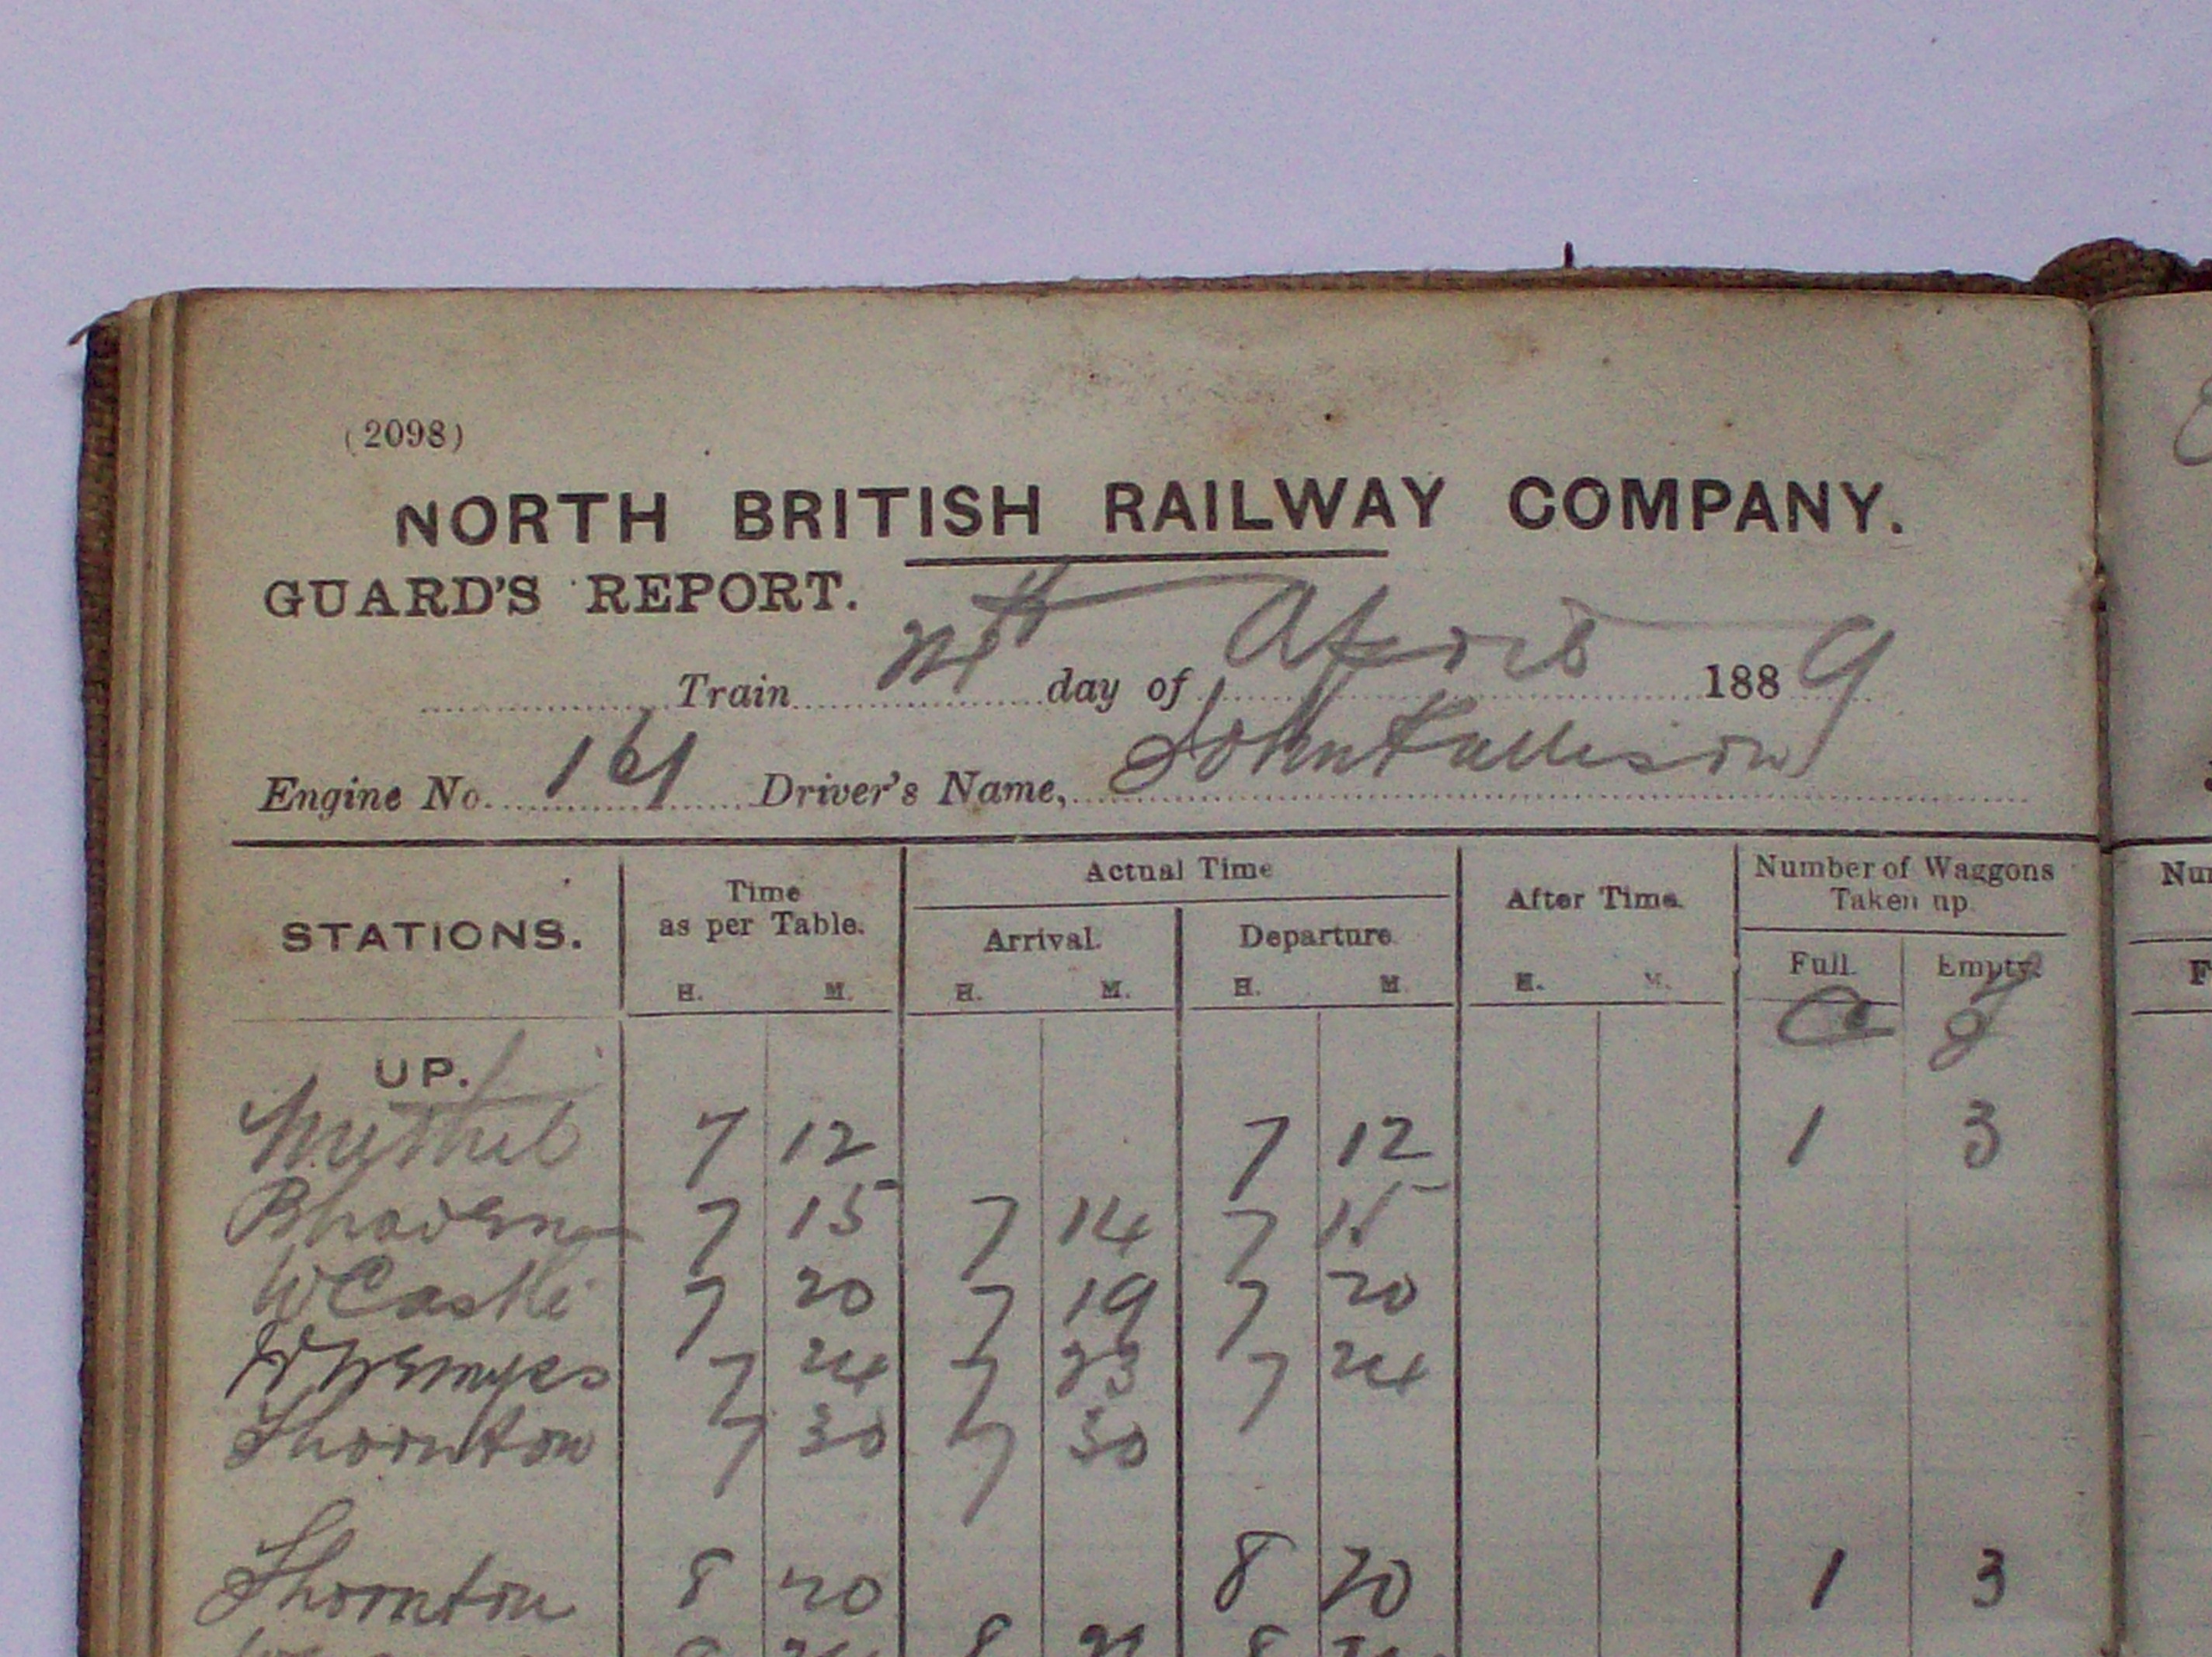 (2098)
NORTH BRITISH RAILWAY COMPANY.
GUARD'S REPORT.
Train 24th day of April 1889
Engine No. 161 Driver's Name, John
STATIONS. Time as per Table. Actual Time After Time. Number of Waggons Taken up.
Arrival. Departure. Full. Empty.
H. M. H. M. H. M. H. M.
UP.
Methil 7 12 7 12 1 3
7 15 7 14 7 15
W Castle 7 20 7 19 7 20
W Wemyss 7 24 7 23 7 24
Thornton 7 30 7 30
Thornton 8 20 8 20 1 3